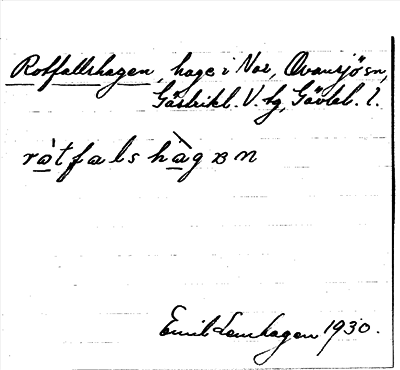 Rotfallshagen, hage i Nor, Ovansjö sn,
Gästrikl. V. tg, Gävlebl. l.
ràtfalshàgən
Emil Lenhagen 1930.